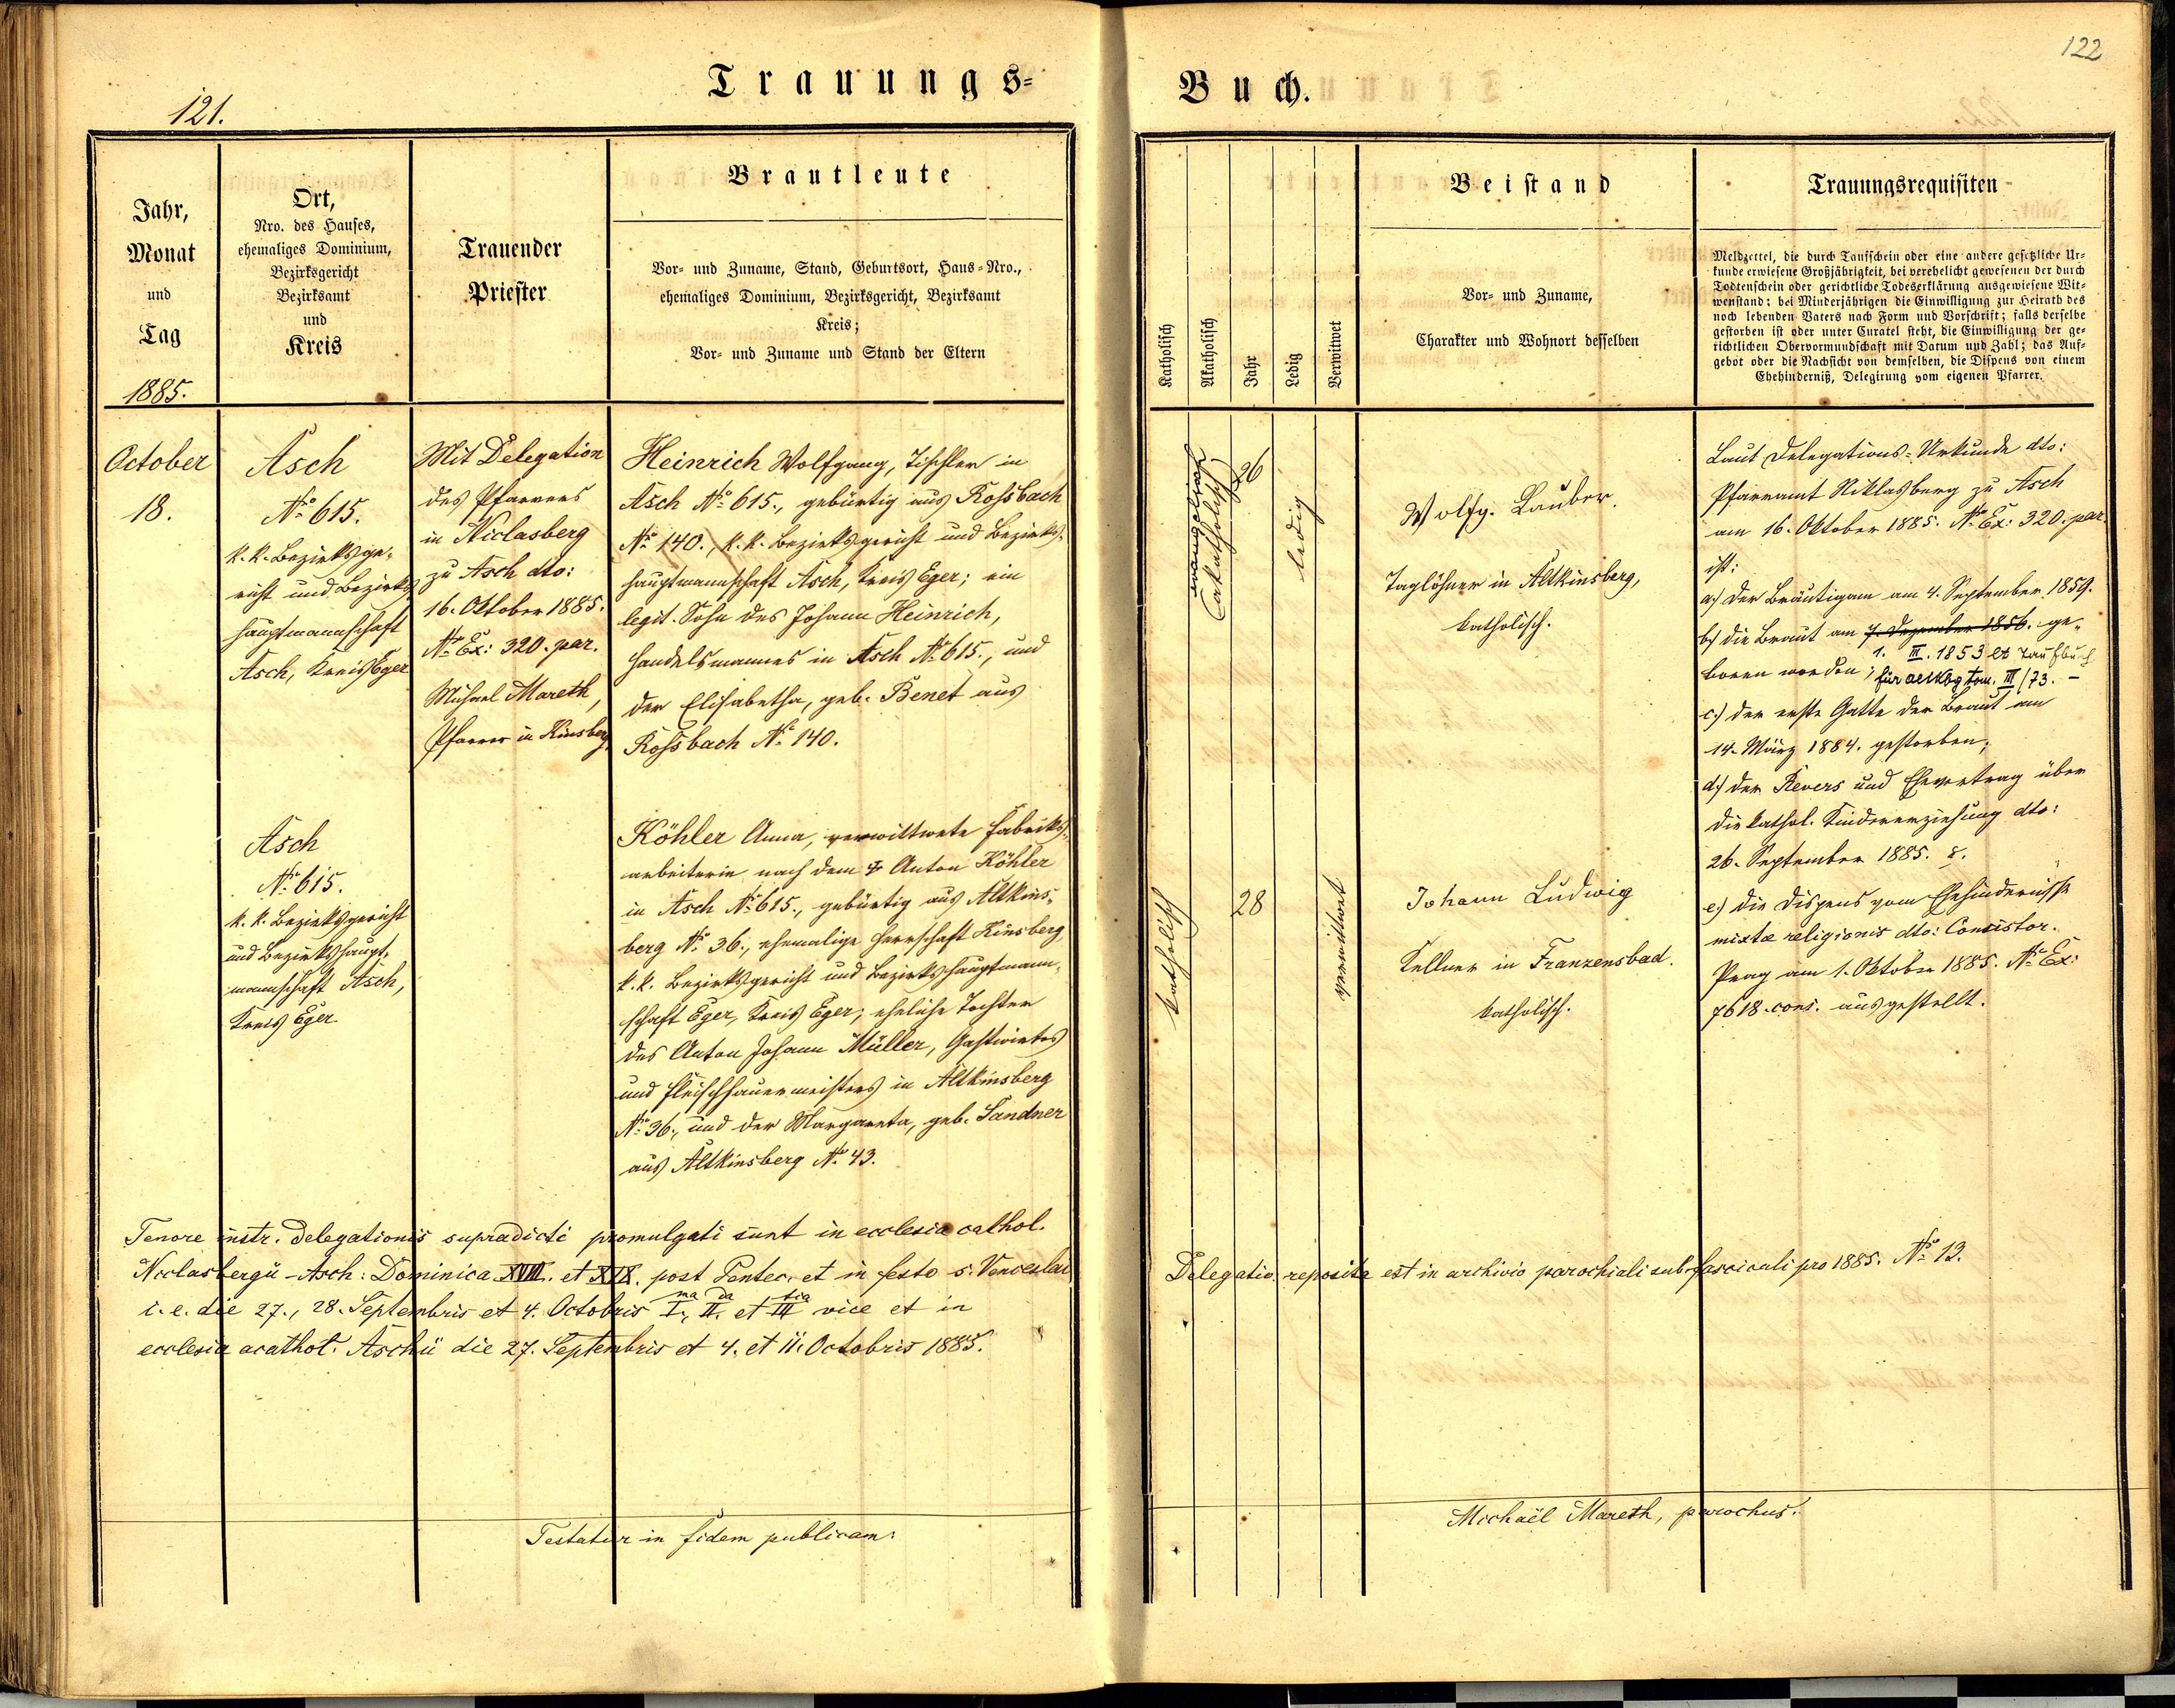 121.
Trauungs=
Jahr,
Monat
und
Tag
1885.
Ort,
Nro. des Hauses,
ehemaliges Dominium,
Bezirksgericht
Bezirksamt
und
Kreis
Trauender
Priester
Brautleute
Vor- und Zuname, Stand, Geburtsort, Haus-Nro.,
ehemaliges Dominium, Bezirksgericht, Bezirksamt
Kreis;
Vor- und Zuname und Stand der Eltern
October
18.
Asch
No 615.
k. k. Bezirksge-
richt und Bezirks-
hauptmannschaft
Asch, Kreis Eger
Mit Delegation
des Pfarrers
in Niclasberg
zu Asch dto:
16. Oktober 1885.
No Ex: 320. par.
Michael Mareth,
Pfarrer in Kinsberg.
Heinrich Wolfgang, Tischler in
Asch No 615., gebürtig aus Roßbach
No 140., k. k. Bezirksgericht und Bezirks-
hauptmannschaft Asch, Kreis Eger; ein
legit. Sohn des Johann Heinrich,
Handelsmannes in Asch No 615., und
der Elisabetha, geb. Benet aus
Roßbach No 140.
Asch
No 615.
k. k. Bezirksgericht
und Bezirkshaupt-
mannschaft Asch,
Kreis Eger
Köhler Anna, verwittwete Fabriks-
arbeiterin nach dem † Anton Köhler
in Asch No 615., gebürtig aus Altkins-
berg No 36., ehemalige Herrschaft Kinsberg
k. k. Bezirksgericht und Bezirkshauptmann-
schaft Eger, Kreis Eger; eheliche Tochter
des Anton Johann Müller, Gastwirtes
und Fleischhauermeisters in Altkinsberg
No 36., und der Margareta, geb. Sandner
aus Altkinsberg No 43.
Tenore instr. delegationis supradicti promulgati sunt in ecclesia cathol.
Niclasbergii-Asch: Dominica XVIII. et XIX. post Pentec. et in festo s. Venceslai
i. e. die 27., 28. Septembris et 4. Octobris I.ma II.da et III.tia vice et in
ecclesia acathol. Aschii die 27. Septembris et 4. et 11. Octobris 1885.
Testatur in fidem publicam:
122
Buch.
Katholisch
Akatholisch
Jahr
Ledig
Verwitwet
Beistand
Vor- und Zuname,
Charakter und Wohnort desselben
Trauungsrequisiten
Meldzettel, die durch Taufschein oder eine andere gesetzliche Ur-
kunde erwiesene Großjährigkeit, bei verehelicht gewesenen der durch
Todtenschein oder gerichtliche Todeserklärung ausgewiesene Wit-
wenstand; bei Minderjährigen die Einwilligung zur Heirath des
noch lebenden Vaters nach Form und Vorschrift; falls derselbe
gestorben ist oder unter Curatel steht, die Einwilligung der ge-
richtlichen Obervormundschaft mit Datum und Zahl; das Auf-
gebot oder die Nachsicht von demselben, die Dispens von einem
Ehehinderniß, Delegirung vom eigenen Pfarrer.
evangelisch
(akatholisch)
26
ledig
Wolfg. Lauber.
Taglöhner in Altkinsberg,
katholisch.
Laut Delegations-Urkunde dto:
Pfarramt Niklasberg zu Asch
am 16. Oktober 1885. No Ex: 320. par.
ist:
a) der Bräutigam am 4. September 1859.
b) die Braut am 7. Dezember 1856. ge-
1. III. 1853 lt Taufbuch
boren worden; für Altkbg tom. III/73. -
c) der erste Gatte der Braut am
14. März 1884. gestorben;
d) der Revers und Ehevertrag über
die kathol. Kindererziehung dto:
26. September 1885.
e) die Dispens vom Ehehindernisse
mixtæ religionis dto: Consistor.
Prag am 1. Oktober 1885. No Ex:
7618. cons. ausgestellt.
katholisch
28
verwittwet
Johann Ludwig
Kellner in Franzensbad.
katholisch.
Delegatio reposita est in archivio parochiali sub fasciculi pro 1885. No 13.
Michaël Mareth, parochus.